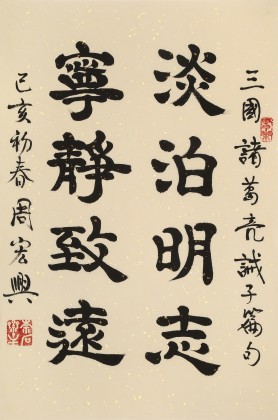 三國諸葛亮誡子篇句
淡泊明志
寧靜致遠
己亥初春周宏興